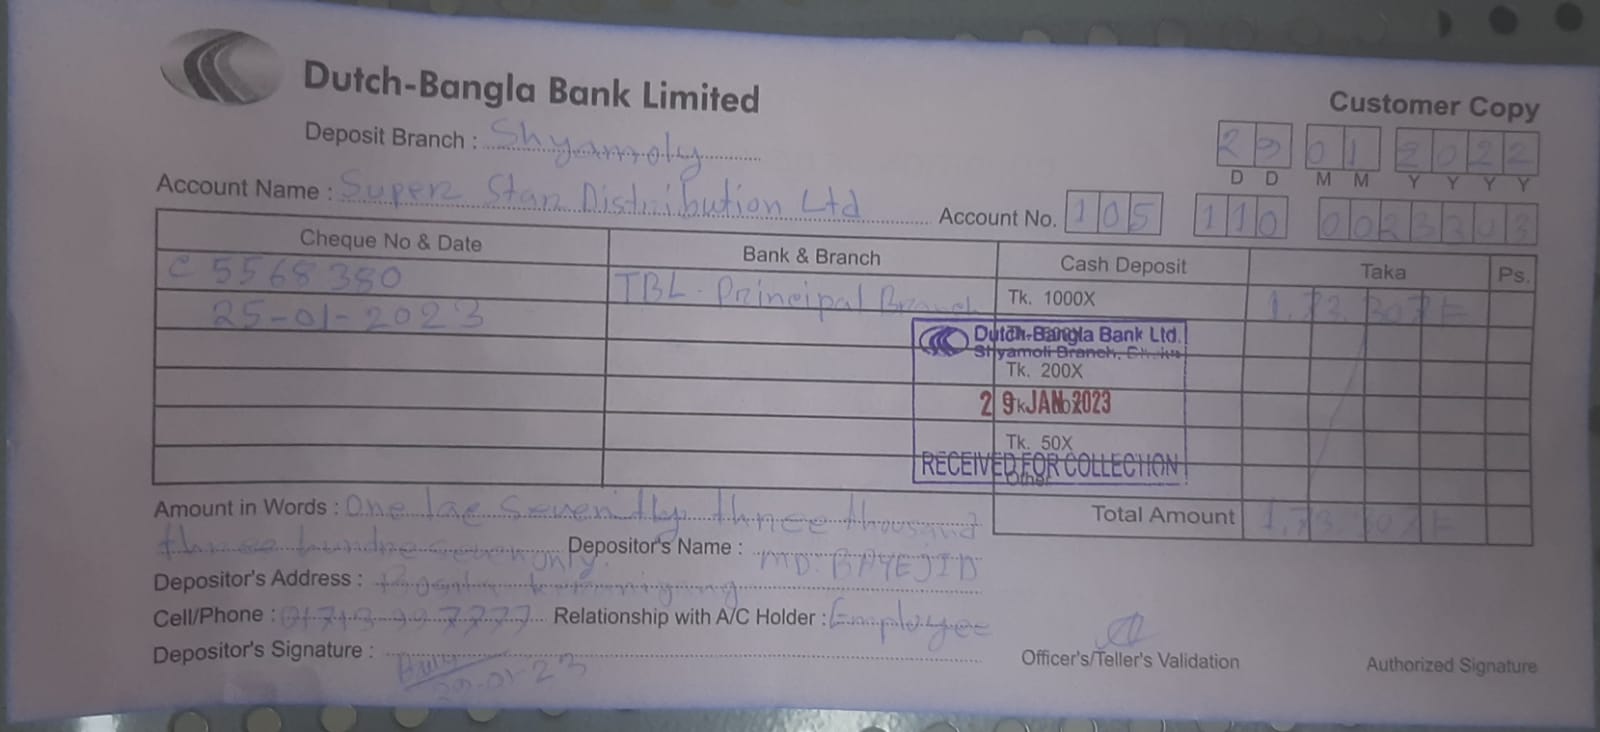 Dutch-Bangla Bank Limited
Customer Copy
Deposit Branch : Shyamoly
29 01 2022
D D M M Y Y Y Y
Account Name : Super Star Distribution Ltd
Account No. 105 110 0023303
Cheque No & Date Bank & Branch Cash Deposit Taka Ps.
C 5568380 TBL. Principal Branch Tk. 1000X 1,73,307/=
25-01-2023
Dutch-Bangla Bank Ltd.
Shyamoli Branch, Dhaka
Tk. 200X
29 JAN 2023
Tk. 50X
RECEIVED FOR COLLECTION
Other
Amount in Words : One lac sevently three thousand
Total Amount 1,73,307/=
three hundre seven only. Depositor's Name : MD. BAYEJID
Depositor's Address :
Cell/Phone : 01713997777 Relationship with A/C Holder : Employee
Depositor's Signature :
29-01-23
Officer's/Teller's Validation
Authorized Signature